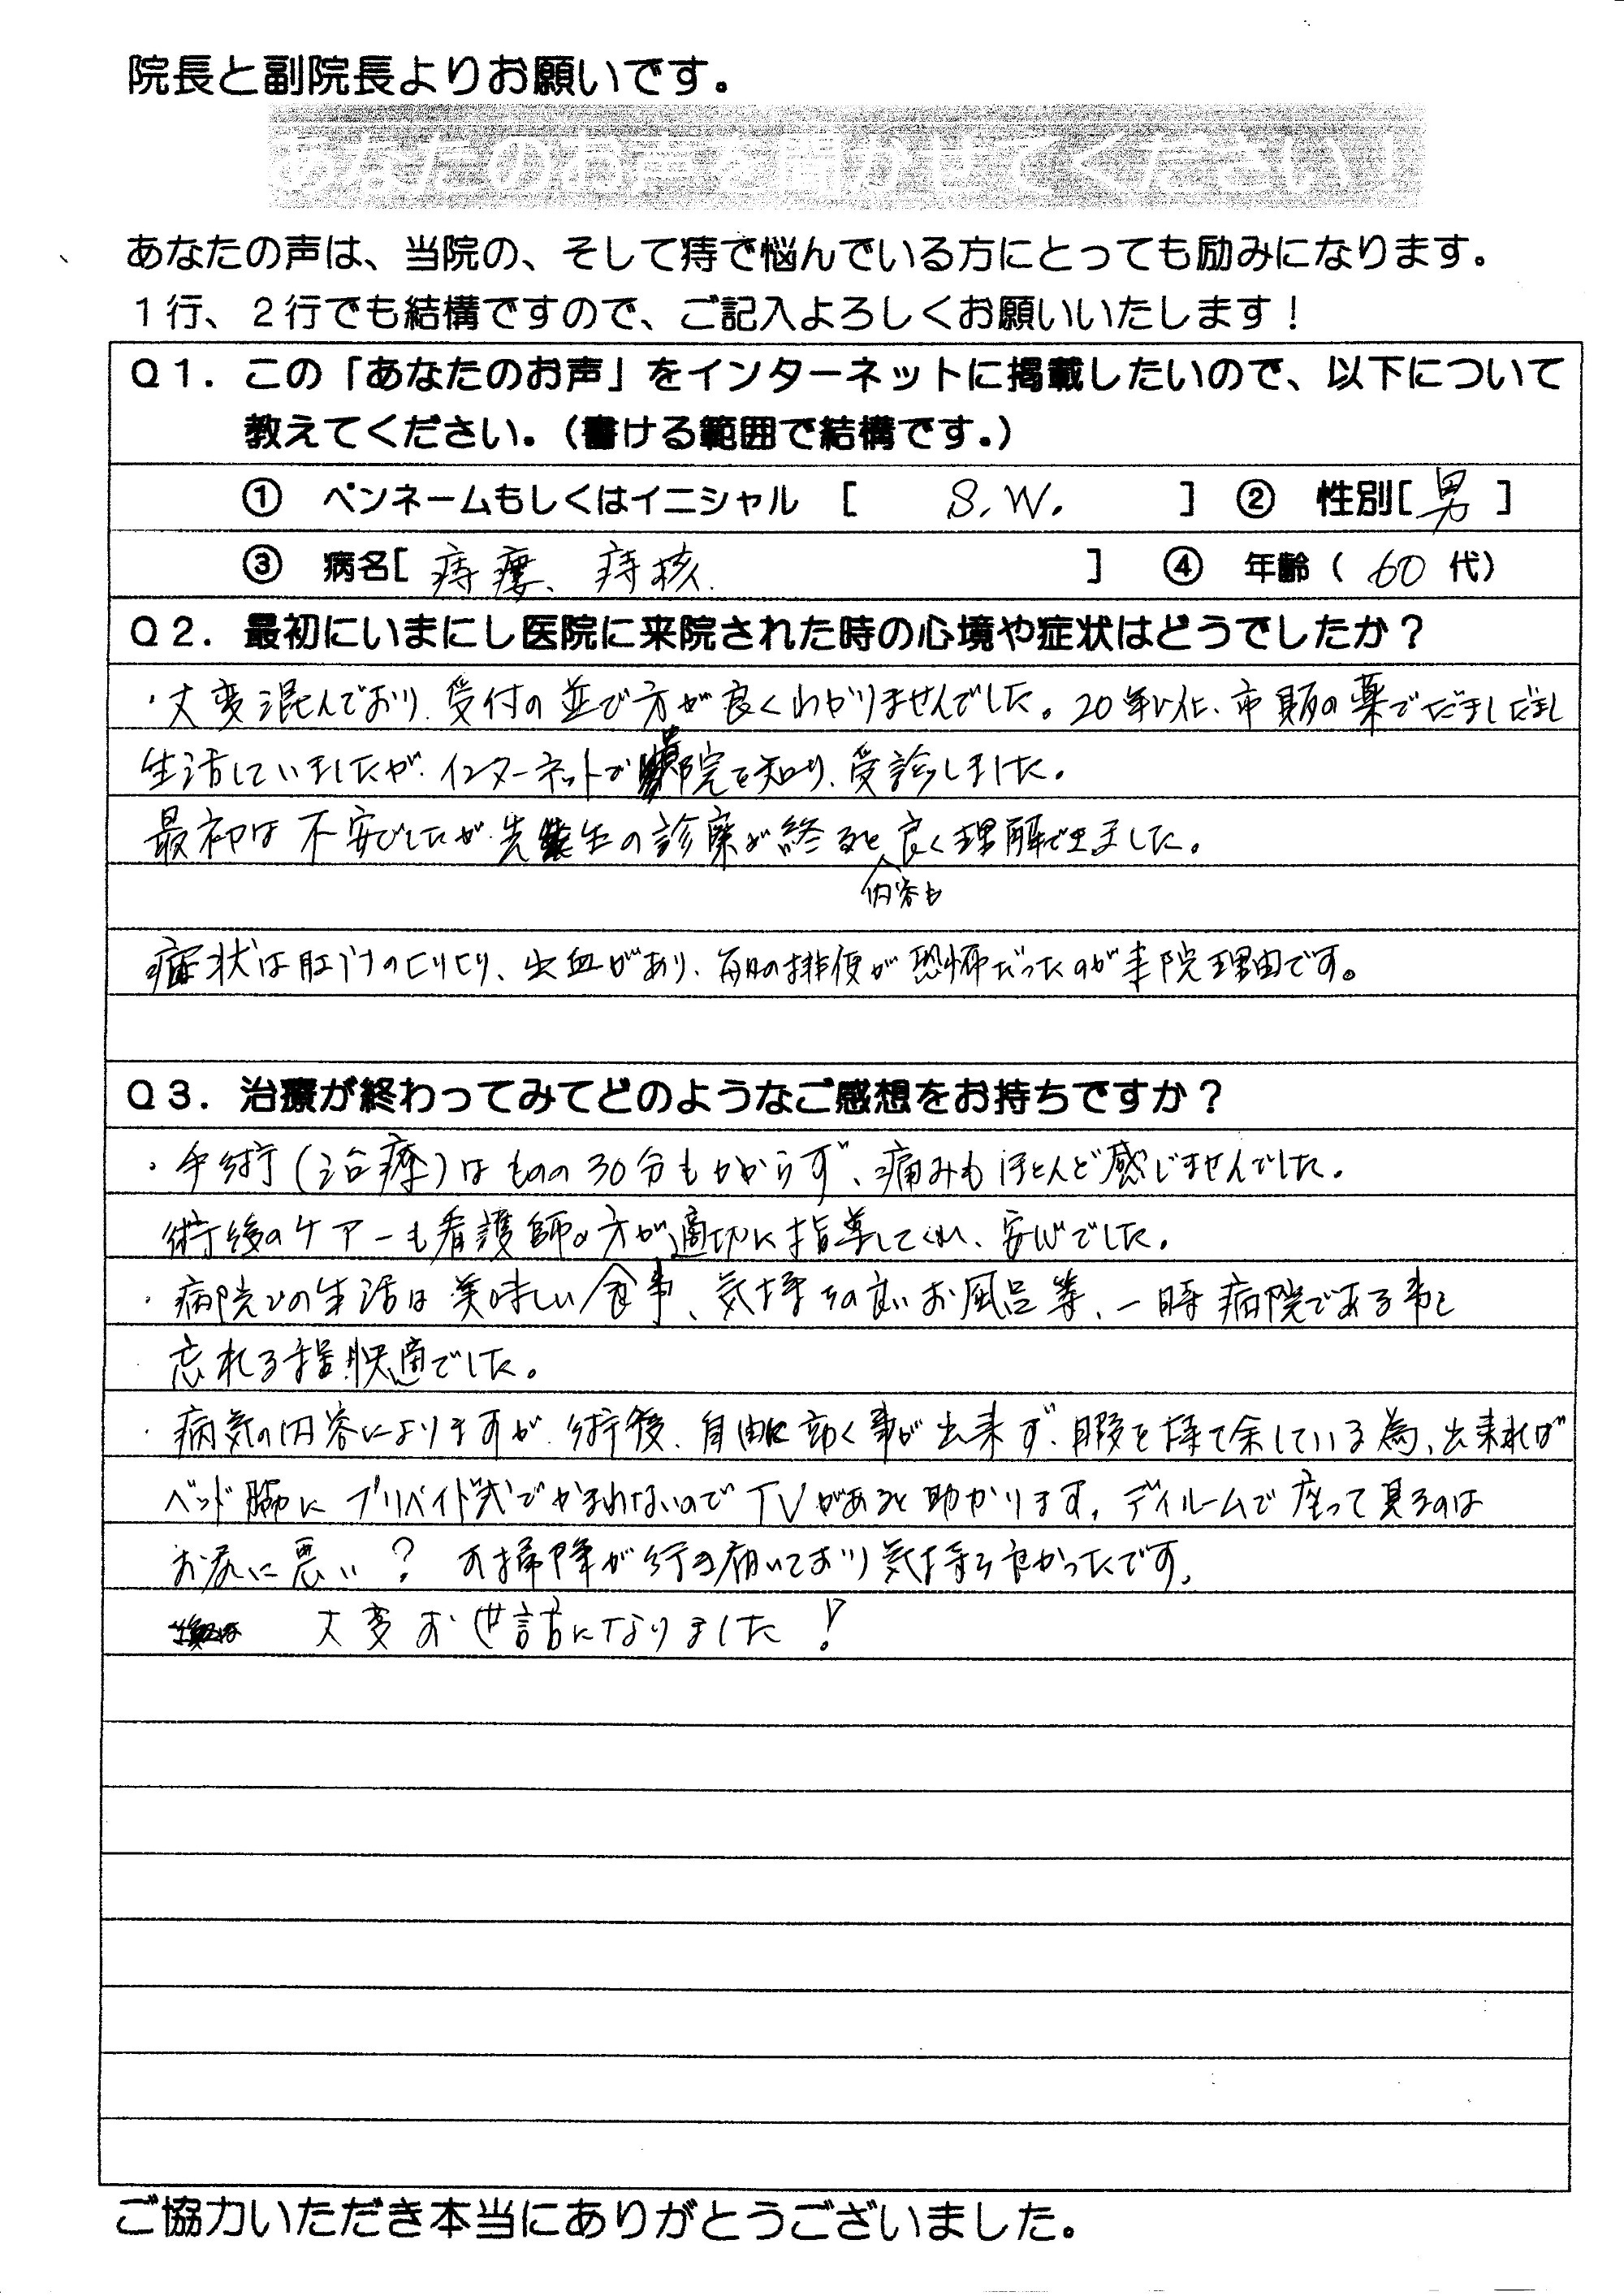 院長と副院長よりお願いです。
あなたのお声を聞かせてください!
あなたの声は、当院の、そして痔で悩んでいる方にとっても励みになります。
1行、2行でも結構ですので、ご記入よろしくお願いいたします!
Q1. この「あなたのお声」をインターネットに掲載したいので、以下について
教えてください。(書ける範囲で結構です。)
① ペンネームもしくはイニシャル [ S.W. ] ② 性別[ 男 ]
③ 病名[ 痔瘻、痔核. ] ④ 年齢( 60 代)
Q2. 最初にいまにし医院に来院された時の心境や症状はどうでしたか?
・大変混んでおり、受付の並び方が良くわかりませんでした。20年以上、市販の薬でだましだまし
生活していましたが、インターネットで 院を知り、受診しました。
最初は不安でしたが、先生の診察が終ると良く理解できました。
内容も
症状は肛門のヒリヒリ、出血があり、毎日の排便が恐怖だったのが来院理由です。
Q3. 治療が終わってみてどのようなご感想をお持ちですか?
・手術(治療)はものの30分もかからず、痛みもほとんど感じませんでした。
術後のケアーも看護師の方が適切に指導してくれ、安心でした。
・病院での生活は美味しい食事、気持ちの良いお風呂等、一時病院である事を
忘れる程快適でした。
・病気の内容によりますが、術後、自由に動く事が出来ず、暇を持て余している為、出来れば
ベッド脇にプリペイド式でかまわないのでTVがあると助かります。デイルームで座って見るのは
お尻に悪い? お掃除が行き届いており気持ち良かったです。
大変お世話になりました!
ご協力いただき本当にありがとうございました。